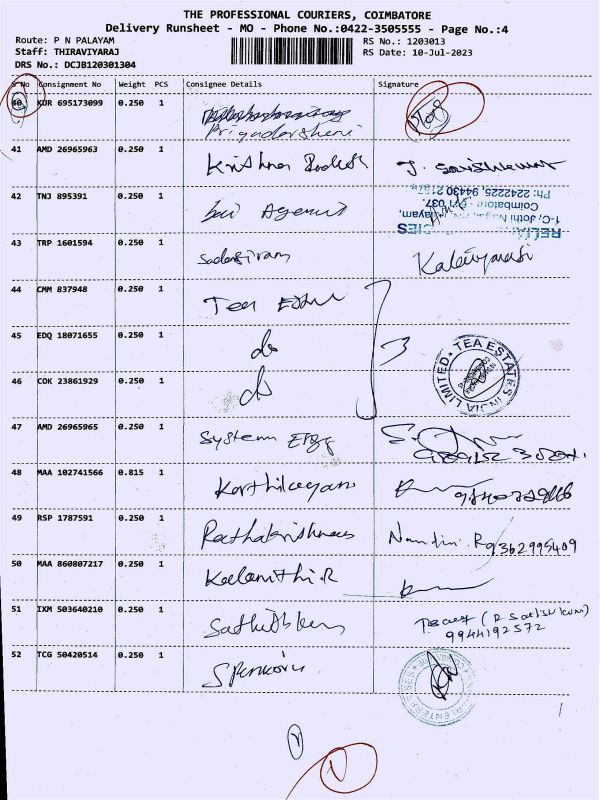 THE PROFESSIONAL COURIERS, COIMBATORE
Delivery Runsheet - MO - Phone No.:0422-3505555 - Page No.:4
Route: P N PALAYAM
Staff: THIRAVIYARAJ
DRS No.: DCJB120301304
RS No.: 1203013
RS Date: 10-Jul-2023
S No Consignment No Weight PCS Consignee Details Signature
40 KUR 695173099 0.250 1
Priyadarsheni
41 AMD 26965963 0.250 1 Krishna
42 TNJ 895391 0.250 1
Ph: 2222225, 94430
Coimbatore 037.
1-C, Jothi
43 TRP 1601594 0.250 1 Sadasivam Kalaiyarasi
44 CMM 837948 0.250 1 Tea
45 EDQ 18071655 0.250 1 do
3
TEA ESTATES INDIA LIMITED
46 COK 23861929 0.250 1 do
47 AMD 26965965 0.250 1 System
48 MAA 102741566 0.815 1 Karthikeyan
49 RSP 1787591 0.250 1 Rathakrishnan Nandini. R 9362995409
50 MAA 860807217 0.250 1 Kalanithi R
51 IXM 503640210 0.250 1 (R Satishkumar)
9944192572
52 TCG 50420514 0.250 1
ENTERPRISES